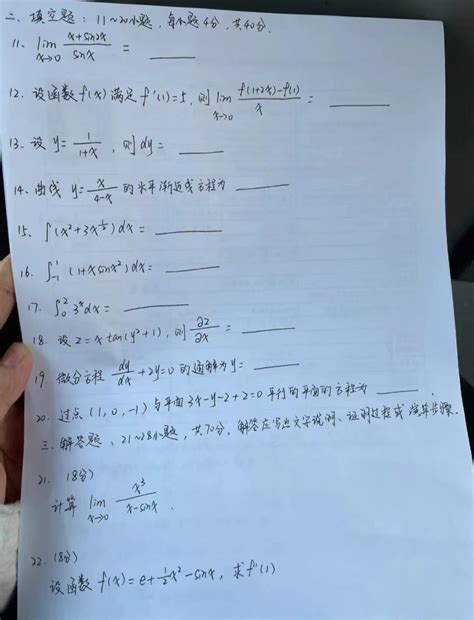 二、填空题：11~20小题，每小题4分，共40分.
11. lim x→0 (x+sin2x)/sinx = ____
12. 设函数 f(x) 满足 f'(1)=5, 则 lim x→0 (f(1+2x)-f(1))/x = ____
13. 设 y= 1/(1+x) , 则 dy= ____
14. 曲线 y= x/(4-x) 的水平渐近线方程为 ____
15. ∫(x²+3x^½)dx = ____
16. ∫₋₁¹ (1+xsinx²)dx = ____
17. ∫₀² 3ˣdx = ____
18. 设 z= x tan(y²+1), 则 ∂z/∂x = ____
19. 微分方程 dy/dx +2y=0 的通解为 y= ____
20. 过点 (1,0,-1) 与平面 3x-y-z+2=0 平行的平面的方程为 ____.
三、解答题、21~28小题，共70分. 解答应写出文字说明、证明过程或演算步骤.
21. (8分)
计算 lim x→0 x³/(x-sinx) .
22. (8分)
设函数 f(x)=e+½x²-sinx, 求 f'(1)